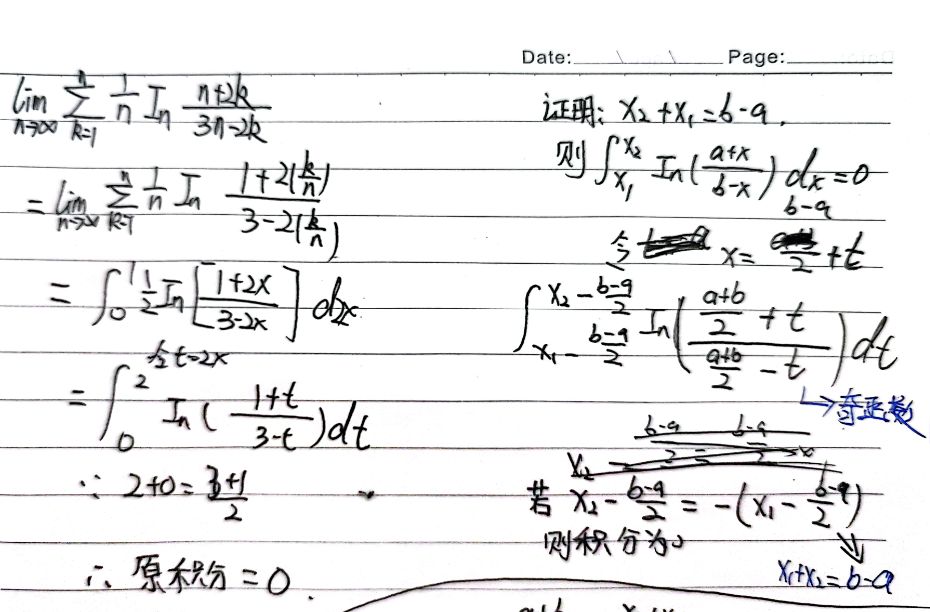 Date: Page:
lim n→∞ ∑ k=1 n 1/n In (n+2k)/(3n-2k)
= lim n→∞ ∑ k=1 n 1/n In (1+2(k/n))/(3-2(k/n))
= ∫₀¹ 1/2 In [(1+2x)/(3-2x)] d2x
令t=2x
= ∫₀² In((1+t)/(3-t))dt
∵ 2+0=(3+1)/2
∴ 原积分=0.
证明: x₂+x₁=b-a.
则 ∫_{x₁}^{x₂} In((a+x)/(b-x)) dx=0
令 x=(b-a)/2+t
∫_{x₁-(b-a)/2}^{x₂-(b-a)/2} In(((a+b)/2+t)/((a+b)/2-t))dt
↳奇函数
若 x₂-(b-a)/2=-(x₁-(b-a)/2)
则积分为0
x₁+x₂=b-a